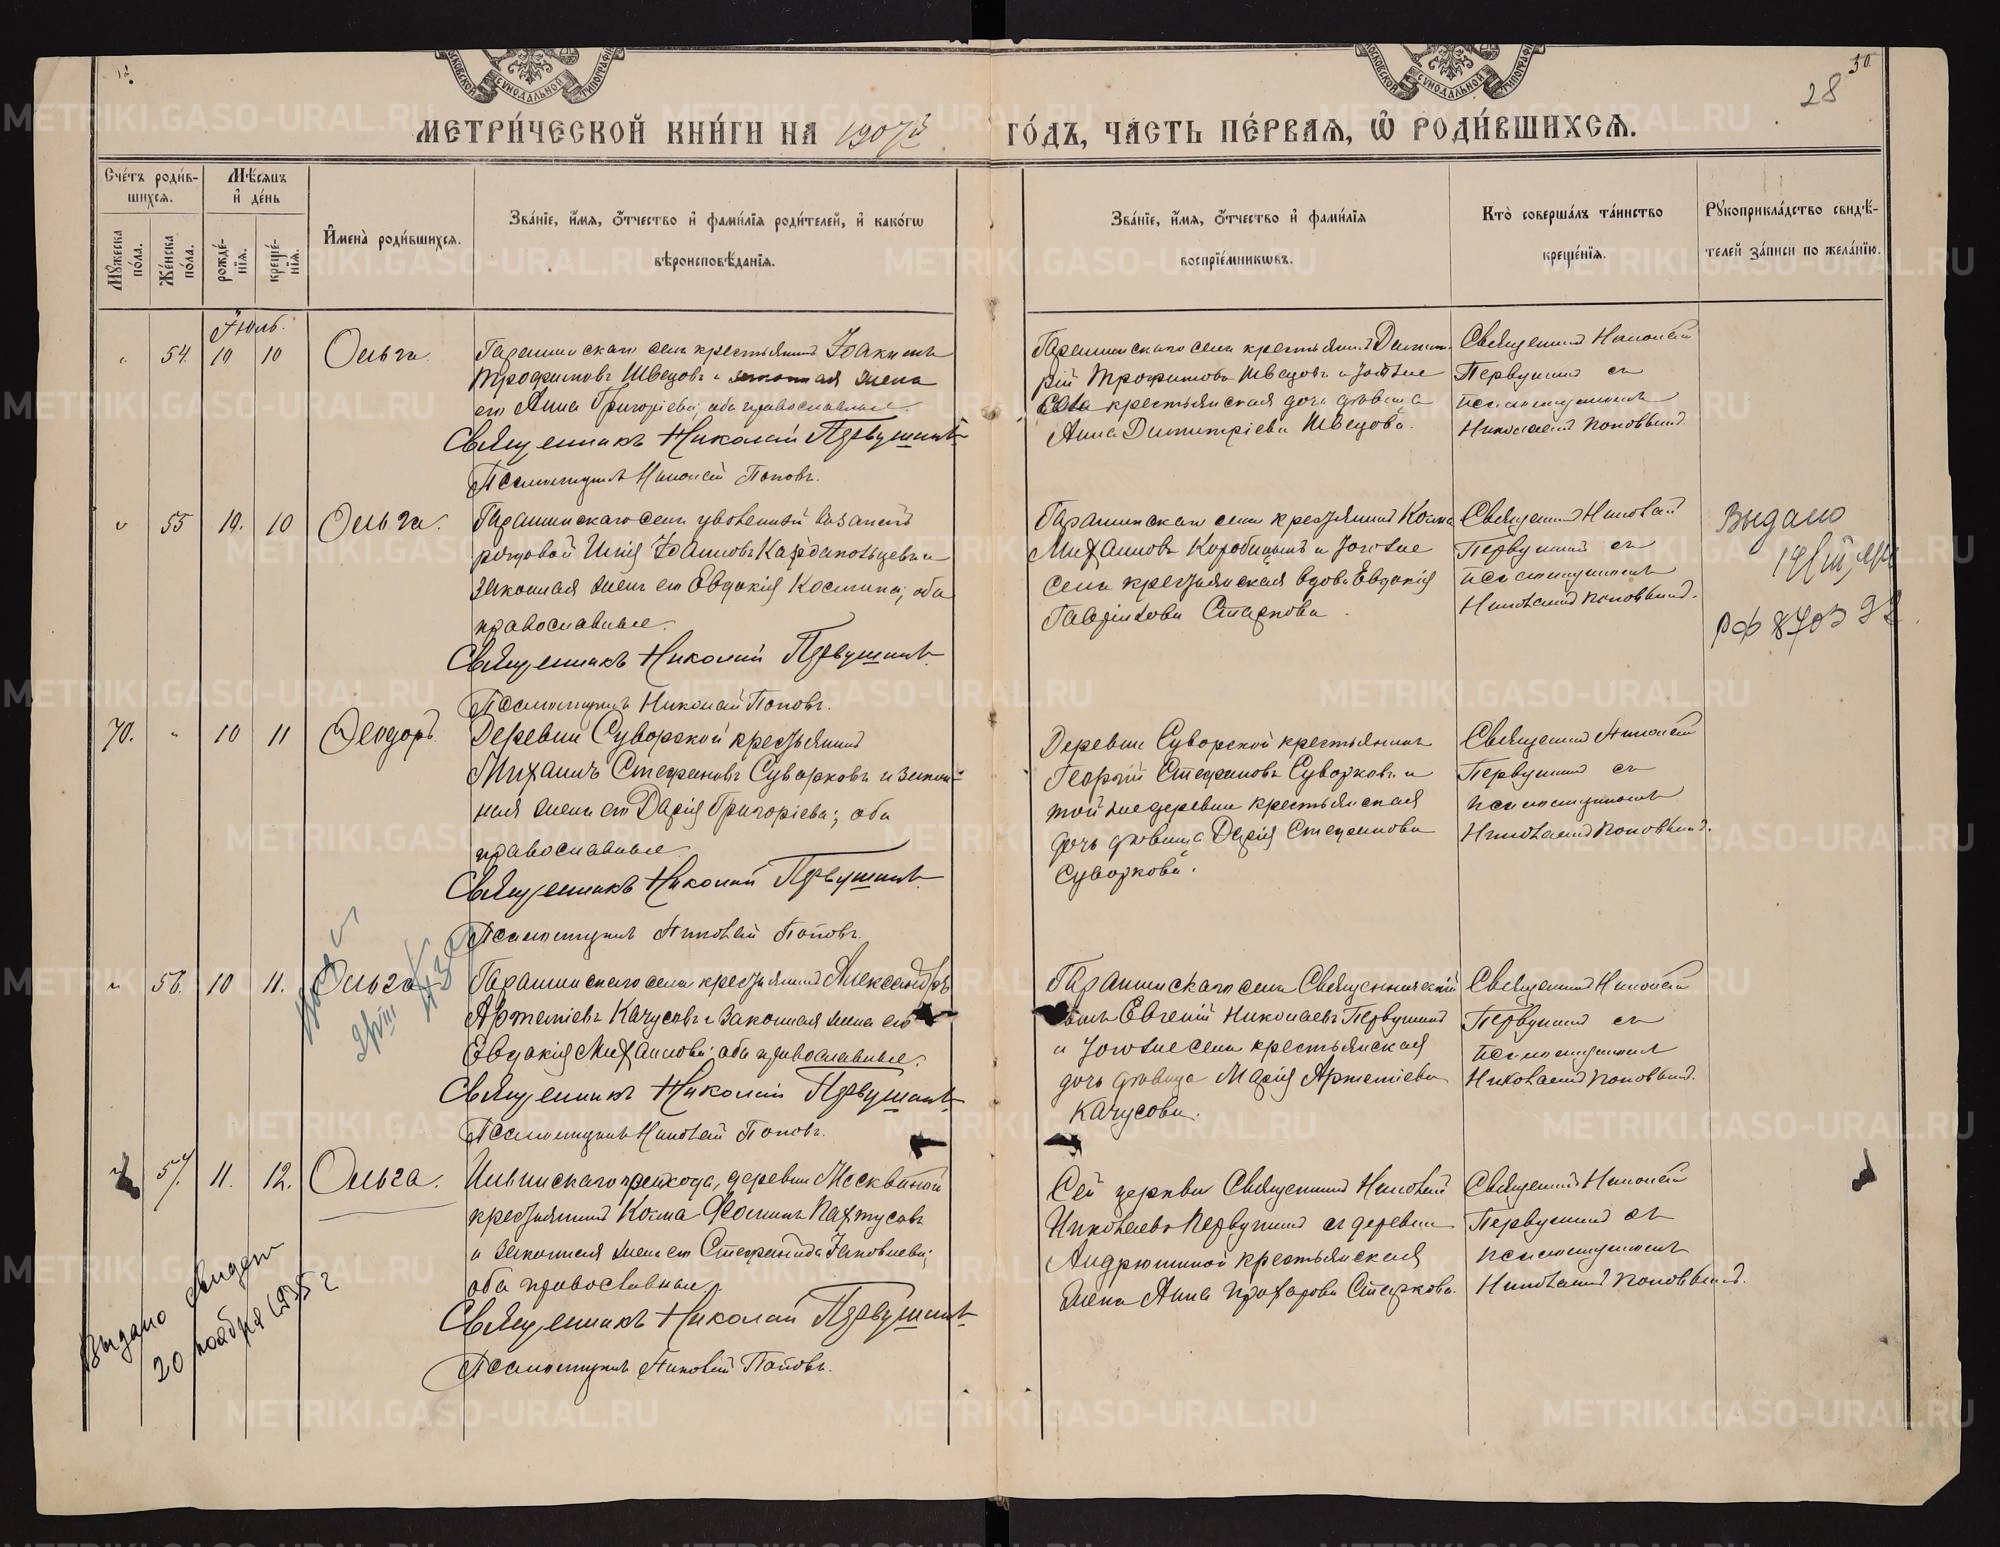 28
30
МЕТРИ́ЧЕСКОЙ КНИ́ГИ НА 1907й ГО́ДЪ, ЧА́СТЬ ПЕ́РВАЯ, Ѿ РОДИ́ВШИХСЯ.
Сче́тъ роди́вшихся.
Мꙋ́жеска по́ла.
Же́нска по́ла.
Мѣ́сяцъ и҆ де́нь
рожде́нїя.
креще́нїя.
И҆мена̀ роди́вшихся.
Зва́нїе, и҆́мя, ѻ҆́тчество и҆ фами́лїя роди́телей, и҆ како́гѡ
вѣроисповѣ́данїя.
Зва́нїе, и҆́мя, ѻ҆́тчество и҆ фами́лїя
воспрїе́мникѡвъ.
Кто̀ соверша́лъ та́инство
креще́нїя.
Рꙋкоприкла́дство свидѣ́-
телей за́писи по жела́нїю.
Іюль.
54. 10 10 Ольга.
Гарашинскаго села крестьянинъ Іоакимъ
Трофимовъ Швецовъ и законная жена
его Анна Григоріева; оба православные.
Священникъ Николай Первушинъ
Псаломщикъ Николай Поповъ.
Гарашинскаго села крестьянинъ Димит-
рій Трофимовъ Швецовъ и тогоже
села крестьянская дочь дѣвица
Анна Димитріева Швецова.
Священникъ Николай
Первушинъ съ
псаломщикомъ
Николаемъ Поповымъ.
55 10. 10 Ольга.
Гарашинскаго села уволенный въ запасъ
рядовой Илія Іоанновъ и
законная жена его Евдокія Космина; оба
православные.
Священникъ Николай Первушинъ.
Псаломщикъ Николай Поповъ.
Гарашинскаго села крестьянинъ Косма
Михаиловъ Коробицынъ и тогоже
села крестьянская вдова Евдокія
Гавріилова Старкова.
Священникъ Николай
Первушинъ съ
псаломщикомъ
Николаемъ Поповымъ.
Выдано
70. 10 11 Ѳеодоръ.
Деревни Суворской крестьянинъ
Михаилъ Стефановъ Суворковъ и закон-
ная жена его Дарія Григоріева; оба
православные.
Священникъ Николай Первушинъ.
Псаломщикъ Николай Поповъ.
Деревни Суворской крестьянинъ
Георгій Стефановъ Суворковъ и
той же деревни крестьянская
дочь дѣвица Дарія Стефанова
Суворкова.
Священникъ Николай
Первушинъ съ
псаломщикомъ
Николаемъ Поповымъ.
56. 10 11. Ольга
Гарашинскаго села крестьянинъ Александръ
Артеміевъ Качусовъ и законная жена его
Евдокія Михаилова; оба православные.
Священникъ Николай Первушинъ
Псаломщикъ Николай Поповъ.
Гарашинскаго села Священническій
сынъ Евгеній Николаевъ Первушинъ
и тогоже села крестьянская
дочь дѣвица Марія Артеміева
Качусова.
Священникъ Николай
Первушинъ съ
псаломщикомъ
Николаемъ Поповымъ.
57. 11. 12. Ольга.
Ильинскаго прихода, деревни Москвиной
крестьянинъ Косма Ѳоминъ Пахтусовъ
и законная жена его Стефанида Іаковлева;
оба православные.
Священникъ Николай Первушинъ
Псаломщикъ Николай Поповъ.
Сей церкви Священникъ Николай
Николаевъ Первушинъ и деревни
Андрюшиной крестьянская
жена Анна Прохорова Старкова.
Священникъ Николай
Первушинъ съ
псаломщикомъ
Николаемъ Поповымъ.
Выдано свидет
20 ноября 1935 г
METRIKI.GASO-URAL.RU